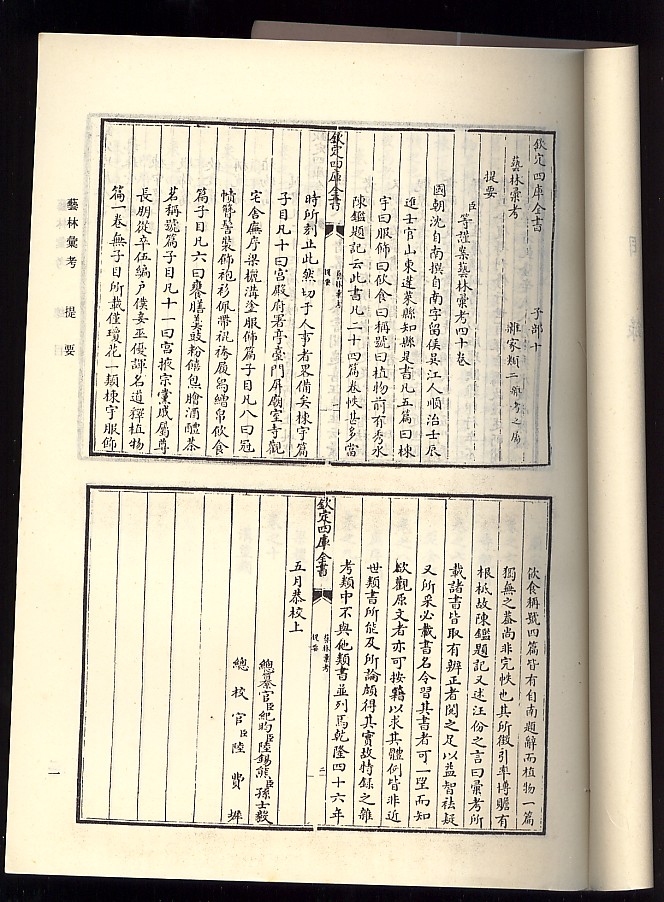 欽定四庫全書
子部十
藝林彙考
雜家類二雜考之屬
提要
臣等謹案藝林彙考四十卷
國朝沈自南撰自南字留侯吳江人順治壬辰
進士官山東蓬萊縣知縣是書凡五篇曰棟
宇曰服飾曰飲食曰稱號曰植物前有秀水
陳鑑題記云此書凡二十四篇卷帙甚多當
欽定四庫全書
藝林彙考
提要
一
時所刻止此然切于人事者畧備矣棟宇篇
子目凡十曰宮殿府署亭臺門屏廟室寺觀
宅舍廡序梁欐溝塗服飾篇子目凡八曰冠
幘簪髻裝飾袍衫佩帶裩袴履舄繒帛飲食
篇子目凡六曰饔膳羹豉粉餻炰膾酒醴茶
茗稱號篇子目凡十一曰宮掖宗黨戚屬尊
長朋從卒伍編户僕妾巫優諢名道釋植物
篇一卷無子目所載僅瓊花一類棟宇服飾
飲食稱號四篇皆有自南題辭而植物一篇
獨無之蓋尚非完帙也其所徵引率博贍有
根柢故陳鑑題記又述汪份之言曰彙考所
載諸書皆取有辨正者閱之足以益智祛疑
又所采必載書名令習其書者可一望而知
欲觀原文者亦可按籍以求其體例皆非近
世類書所能及所論頗得其實故特録之雜
考類中不與他類書並列焉乾隆四十六年
欽定四庫全書
藝林彙考
提要
二
五月恭校上
總纂官臣紀昀臣陸錫熊臣孫士毅
總校官臣陸費墀
藝林彙考 提要
一